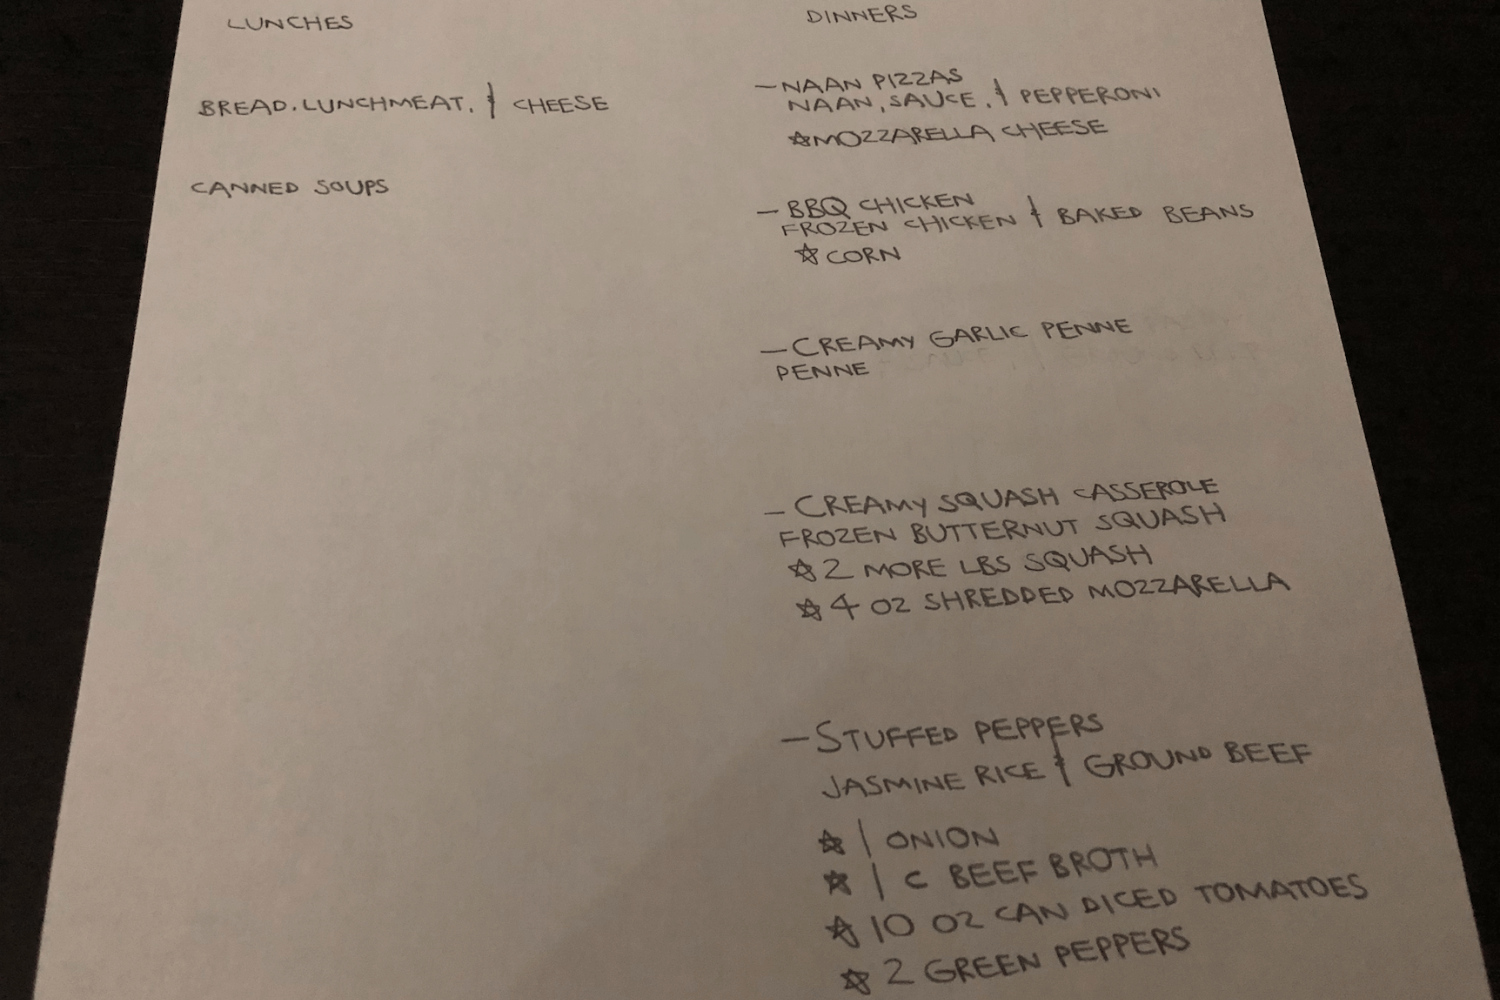 LUNCHES
BREAD, LUNCHMEAT, & CHEESE
CANNED SOUPS
DINNERS
— NAAN PIZZAS
NAAN, SAUCE, & PEPPERONI
☆ MOZZARELLA CHEESE
— BBQ CHICKEN
FROZEN CHICKEN & BAKED BEANS
☆ CORN
— CREAMY GARLIC PENNE
PENNE
— CREAMY SQUASH CASSEROLE
FROZEN BUTTERNUT SQUASH
☆ 2 MORE LBS SQUASH
☆ 4 OZ SHREDDED MOZZARELLA
— STUFFED PEPPERS
JASMINE RICE & GROUND BEEF
☆ 1 ONION
☆ 1 C BEEF BROTH
☆ 10 OZ CAN DICED TOMATOES
☆ 2 GREEN PEPPERS